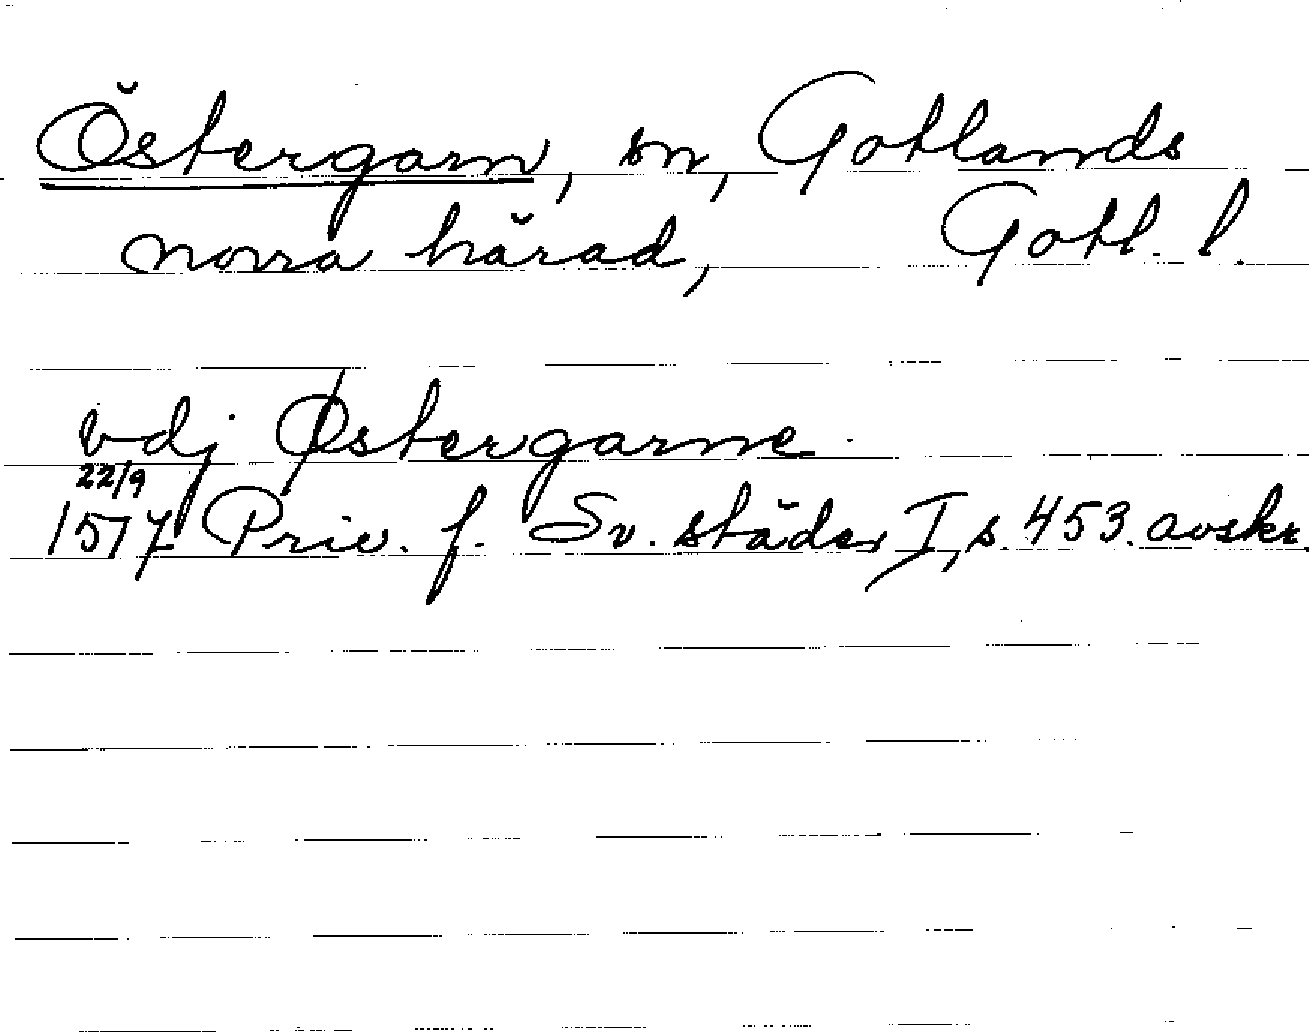 Östergarn, sn, Gotlands
norra härad, Gotl. l.
vdj Østergarne
22/9
1517 Priv. f. Sv. städer I, s. 453. avskr.